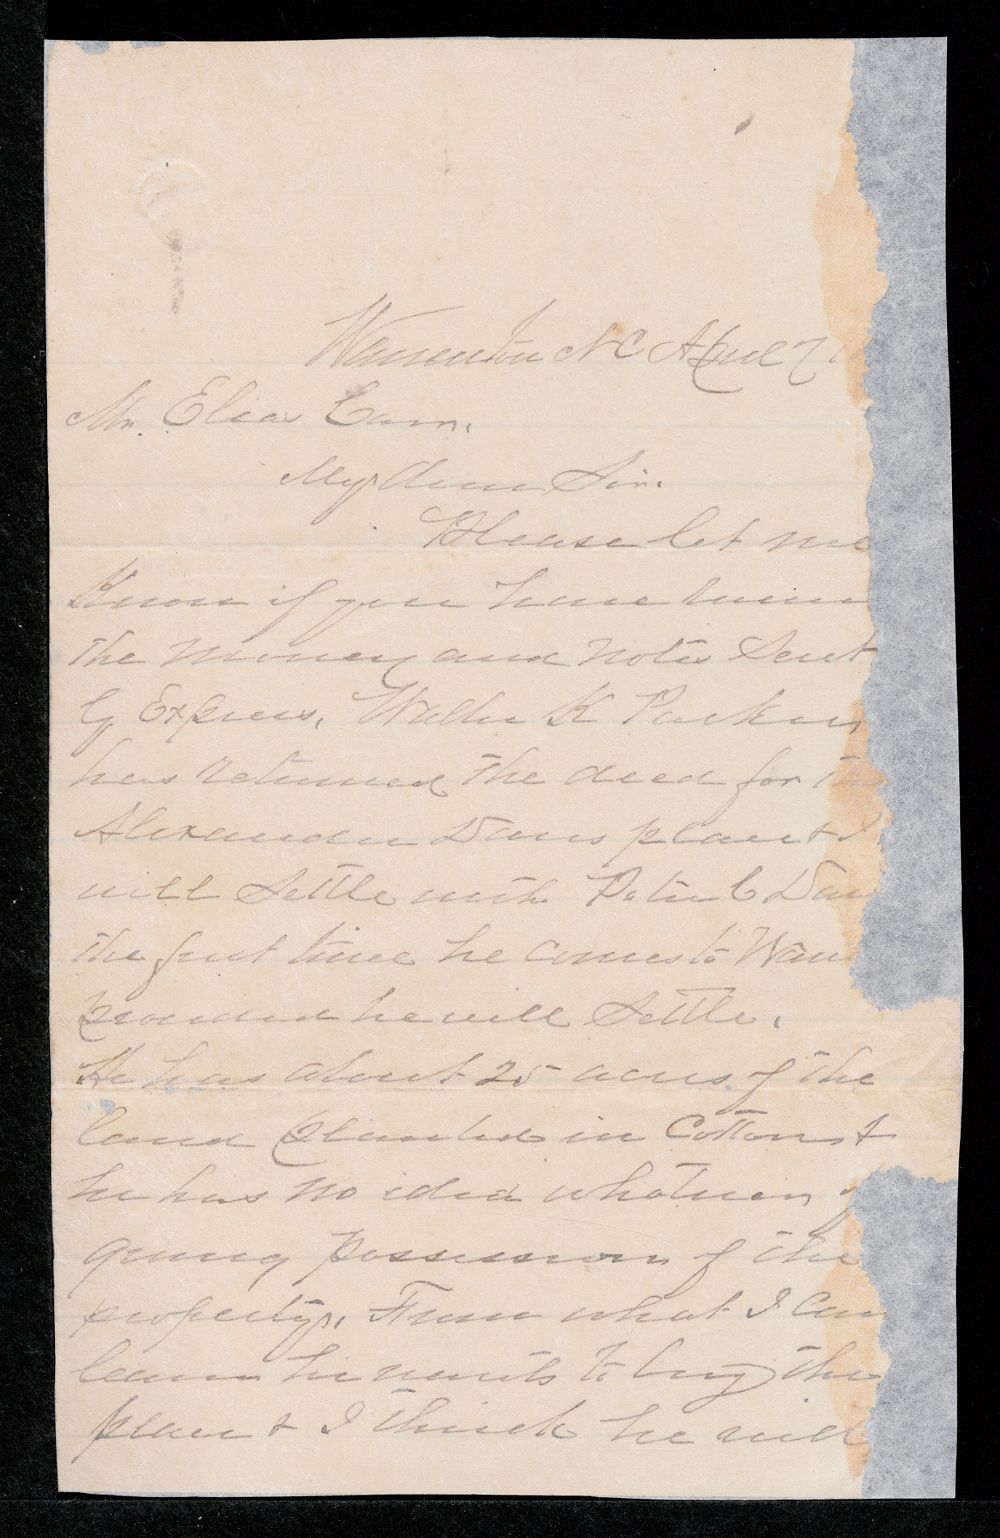 Warrenton N C April 7
Mr. Elias Carr.
My dear Sir.
Please let me
Know if you have
the money and notes Sent
by Express. Walter K Parker
has returned the deed for the
Alexander Davis place & I
will Settle with Peter C Dav
the first time he comes to Warr
provided he will Settle.
He has about 25 acres of the
land planted in Cotton &
he has no idea whatever of
giving possession of the
property. From what I can
learn he wants to buy the
place & I think he will